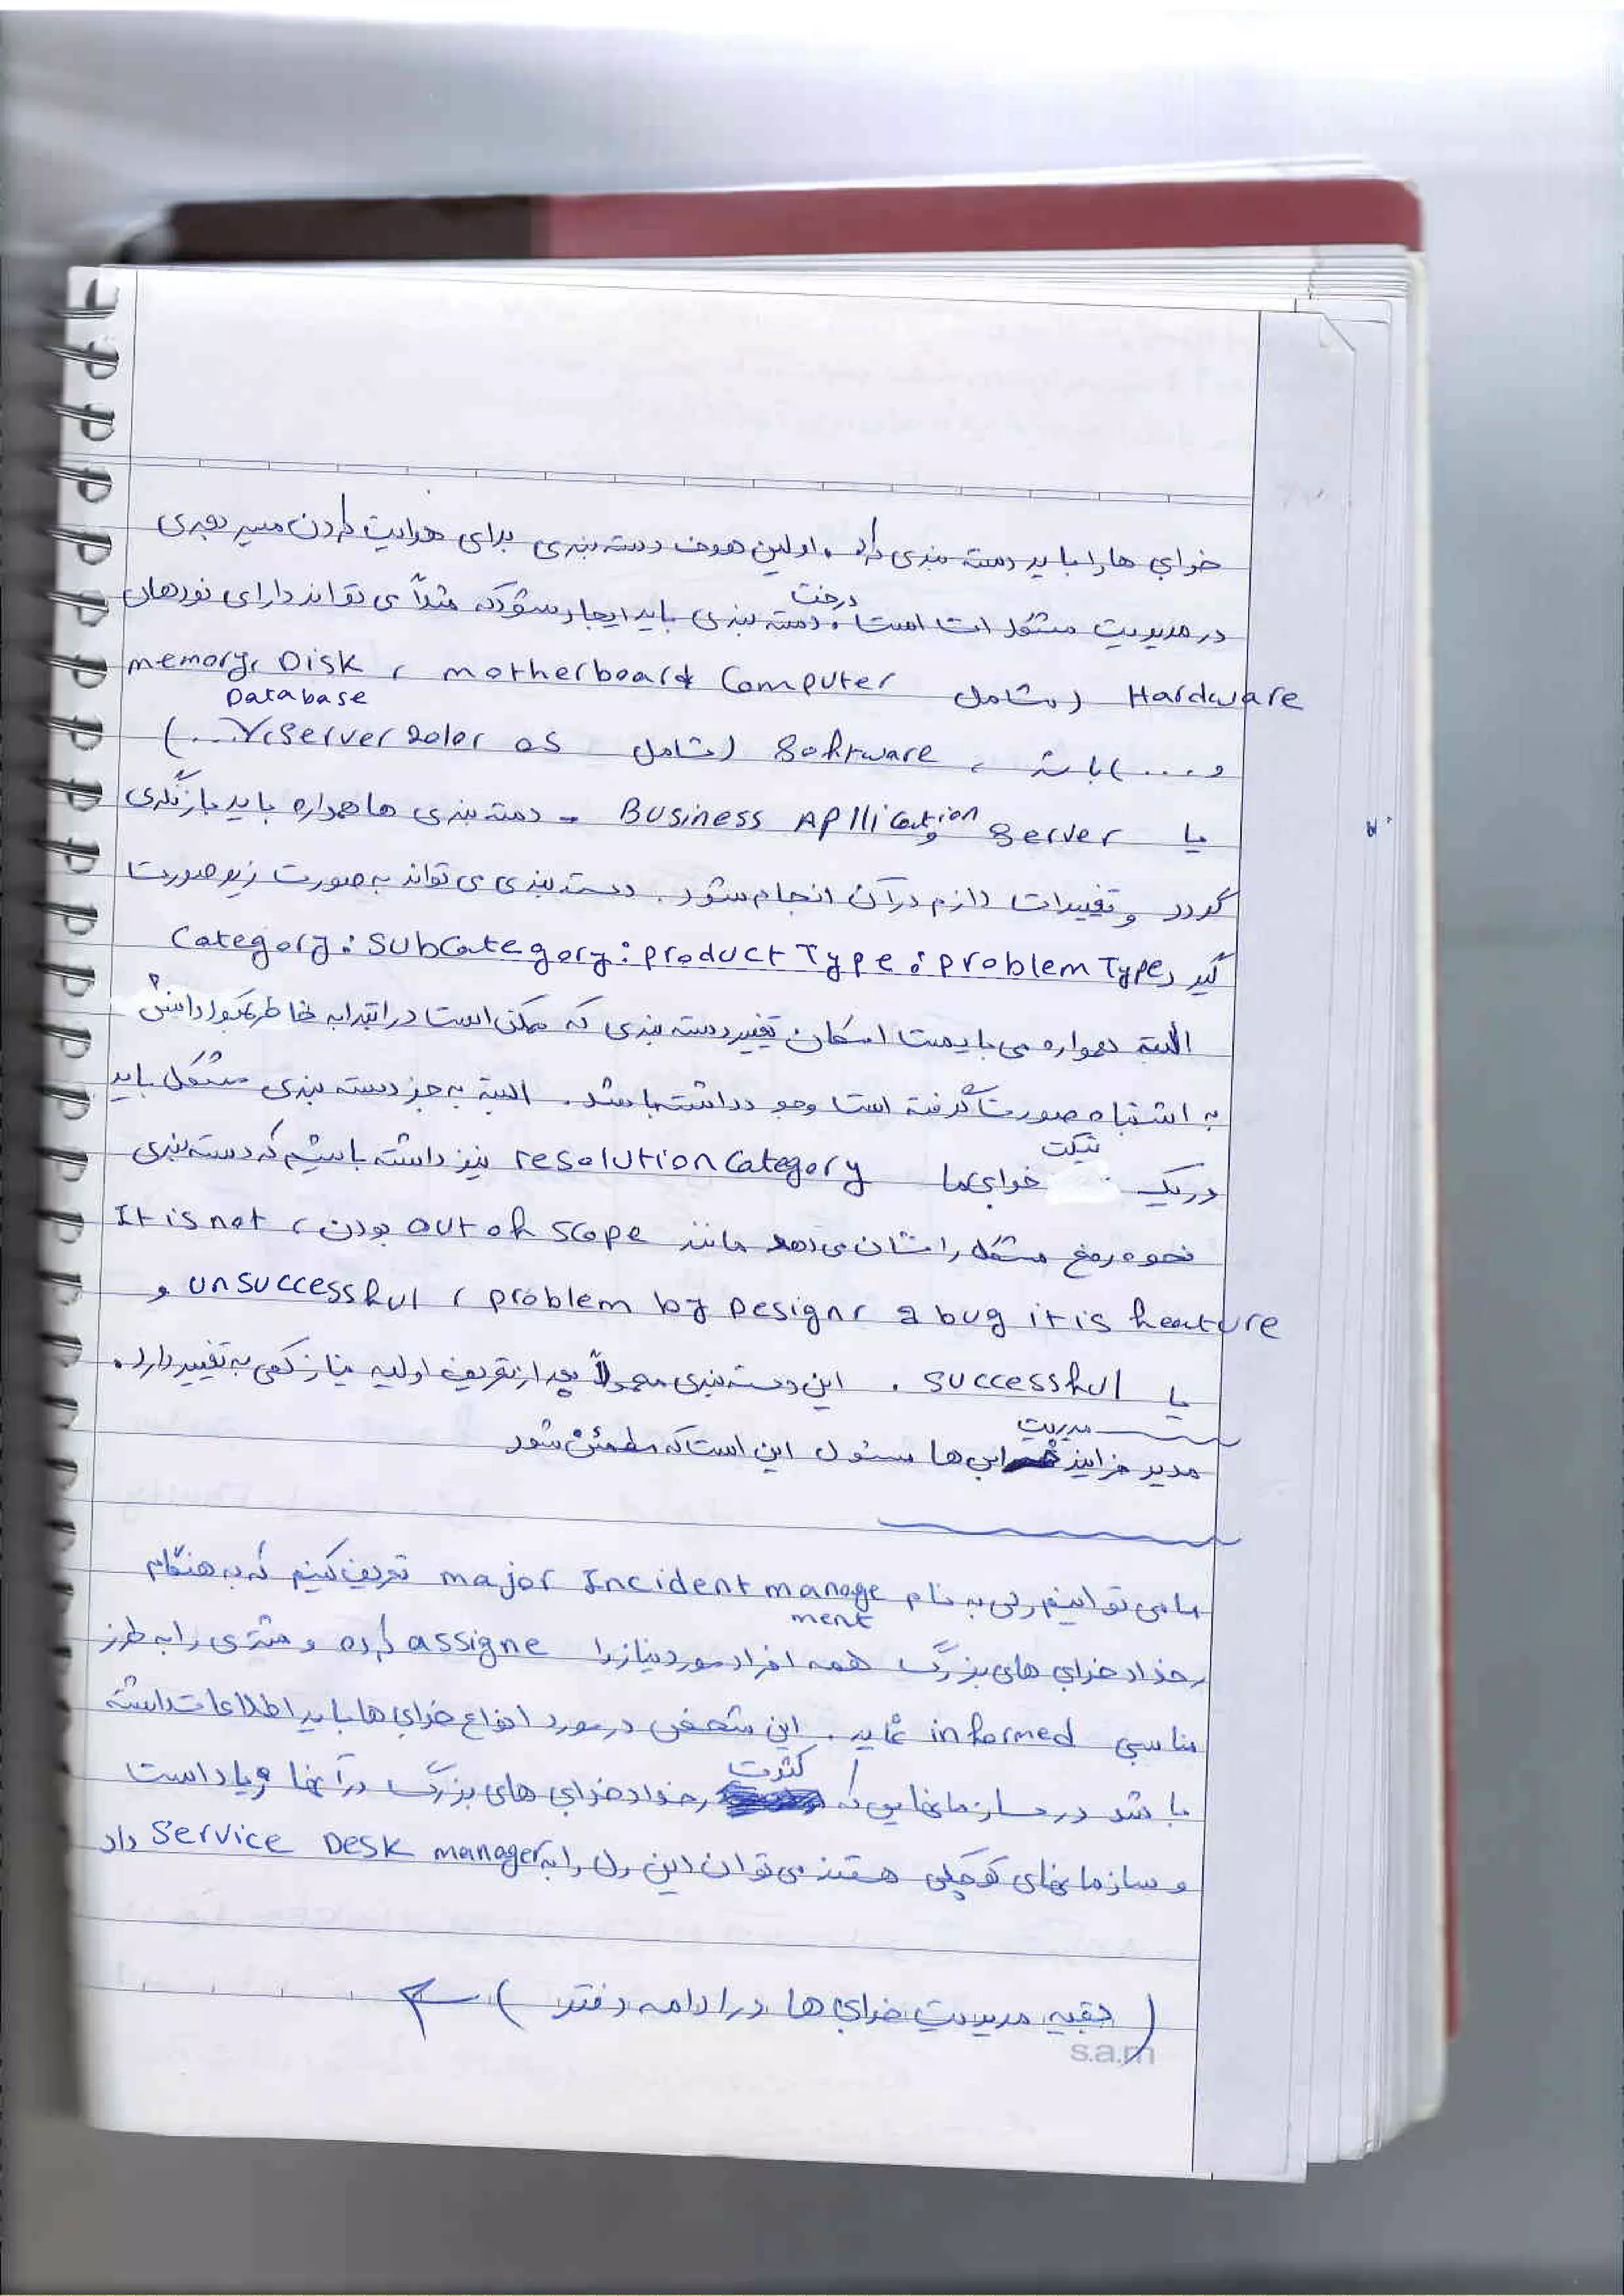 خرابی ها را باید دسته بندی کرد. اولین هدف دسته بندی برای هدایت کردن مسیر
در مدیریت مشکلات است. درخت دسته بندی باید ایجاد شود که مثلاً می تواند دارای نودهای
Hardware (شامل Computer motherboard، Disk، memory
و ....) باشد، Software (شامل OS، Server، Database ...)
یا Server و Business Apllication - دسته بندی ها همواره باید بازنگری
گردد و تغییرات لازم در آن انجام شود. دسته بندی می تواند به صورت زیر صورت
گیرد Category: Subcategory: product Type: problem Type
البته همواره می بایست امکان تغییر دسته بندی که ممکن است در ابتدا به خاطر کمبود دانش
به اشتباه صورت گرفته است وجود داشته باشد. البته به جز دسته بندی مشکل باید
در یک تیکت خرابی ما resolution category نیز داشته باشیم که دسته بندی
نحوه رفع مشکل را نشان می دهد مانند out of scope بودن، It is not
a bug it is feature، problem by Design، unsuccessful و
یا successful. این دسته بندی معمولاً بعد از تعریف اولیه نیاز کمی به تغییر دارد.
مدیر فرایند مدیریت خرابی ها مسئول این است که مطمئن شود
ما می توانیم رلی به نام major Incident management تعریف کنیم که به هنگام
رخداد خرابی های بزرگ همه افراد مورد نیاز را assigne کرده و مشتری را به طرز
مناسبی informed نماید. این شخص در مورد انواع خرابی ها باید اطلاعات داشته
باشد در سازمانهایی که کثرت رخداد خرابی های بزرگ در آنها زیاد است
و سازمانهای کوچکی هستند می توان این رل را به Service Desk manager داد
(بقیه مدیریت خرابی ها در ادامه دفتر)
s.a.m